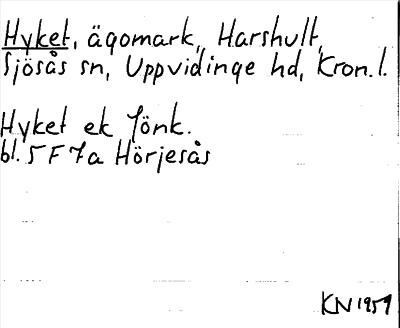 Hyket, ägomark, Harshult,
Sjösås sn, Uppvidinge hd, Kron.l.
Hyket ek Jönk.
bl. 5 F 7a Hörjesås
KN 1951